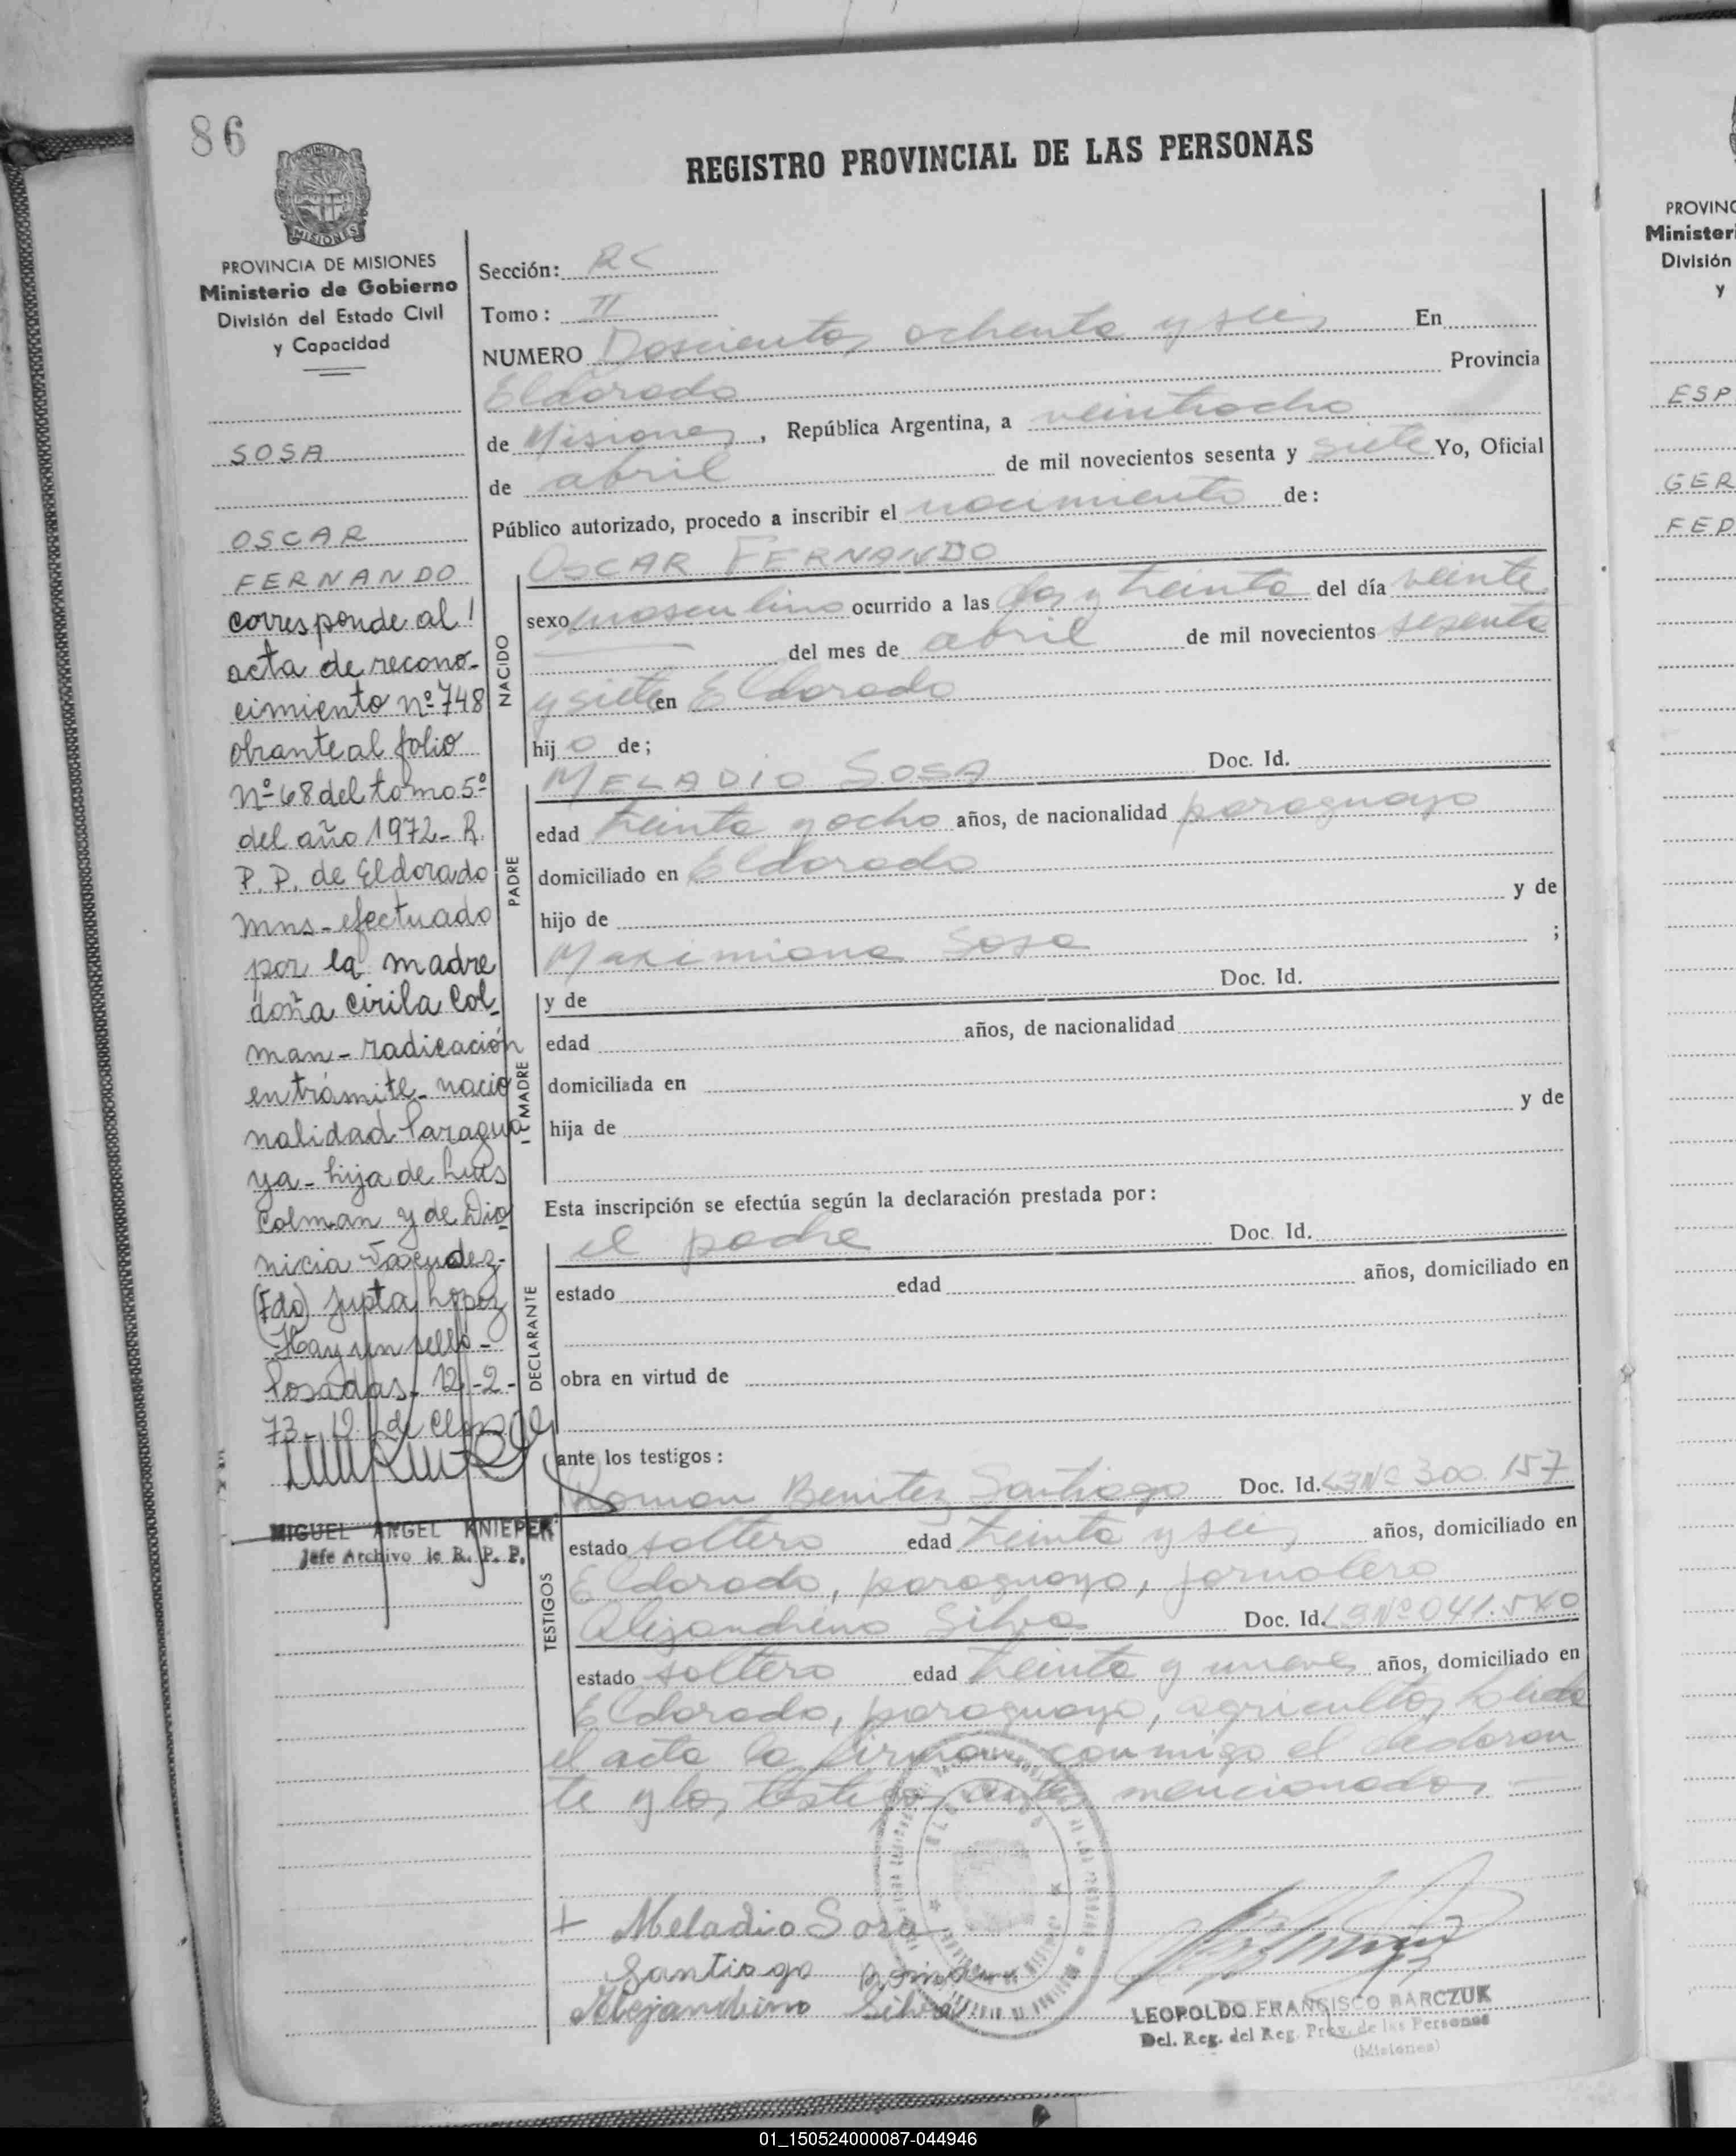 86
REGISTRO PROVINCIAL DE LAS PERSONAS
MISIONES
PROVINCIA DE MISIONES
Ministerio de Gobierno
División del Estado Civil
y Capacidad
SOSA
OSCAR
FERNANDO
corresponde al
acta de recono-
cimiento nº 748
obrante al folio
Nº 68 del tomo 5º
del año 1972- R.
P. P. de Eldorado
mns- efectuado
por la madre
doña cirila Col-
man - radicación
en trámite - nacio
nalidad Paragua
ya - hija de Luis
Colman y de Dio
nicia
(Fdo) Justa Lopez
Hay un sello -
Posadas, 12-2-
73-
MIGUEL ANGEL KNIEPER
Jefe Archivo de R. P. P.
Sección: RC
Tomo: II
NUMERO Doscientos ochenta y seis En
Eldorado Provincia
de Misiones, República Argentina, a veintiocho
de abril de mil novecientos sesenta y siete Yo, Oficial
Público autorizado, procedo a inscribir el nacimiento de:
NACIDO
OSCAR FERNANDO
sexo masculino ocurrido a las dos y treinta del día veinte
del mes de abril de mil novecientos sesenta
y siete en Eldorado
hijo de;
PADRE
MELADIO SOSA Doc. Id.
edad treinta y ocho años, de nacionalidad paraguayo
domiciliado en Eldorado
hijo de y de
Maximiana Sosa ;
MADRE
y de Doc. Id.
edad años, de nacionalidad
domiciliada en
hija de y de
Esta inscripción se efectúa según la declaración prestada por:
DECLARANTE
el padre Doc. Id.
estado edad años, domiciliado en
obra en virtud de
ante los testigos:
TESTIGOS
Roman Benitez Santiago Doc. Id. 300.157
estado soltero edad treinta y seis años, domiciliado en
Eldorado, paraguayo, jornalero
Alejandrino Silva Doc. Id. Nº 041.540
estado soltero edad treinta y nueve años, domiciliado en
Eldorado, paraguayo, agricultor, Leida
el acta la firman conmigo el declaran
te y los testigos antes mencionados
+ Meladio Sosa
Santiago
Alejandrino Silva
LEOPOLDO FRANCISCO BARCZUK
Del. Reg. del Reg. Prov. de las Personas
(Misiones)
PROVINC
Minister
División
y
ESP
GER
FED
01_150524000087-044946